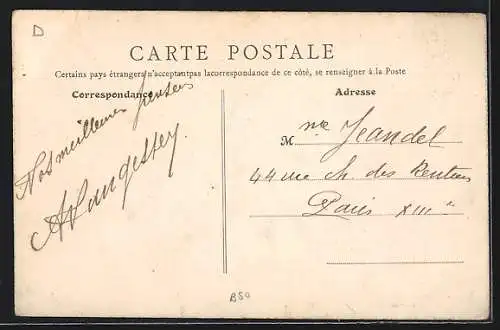 D
CARTE POSTALE
Certains pays étrangers n'acceptant pas la correspondance de ce côté, se renseigner à la Poste
Correspondance
Adresse
Nos meilleures pensées
M me Jeandel
44 rue Ch. des Rentiers
Paris XIIIe
B50